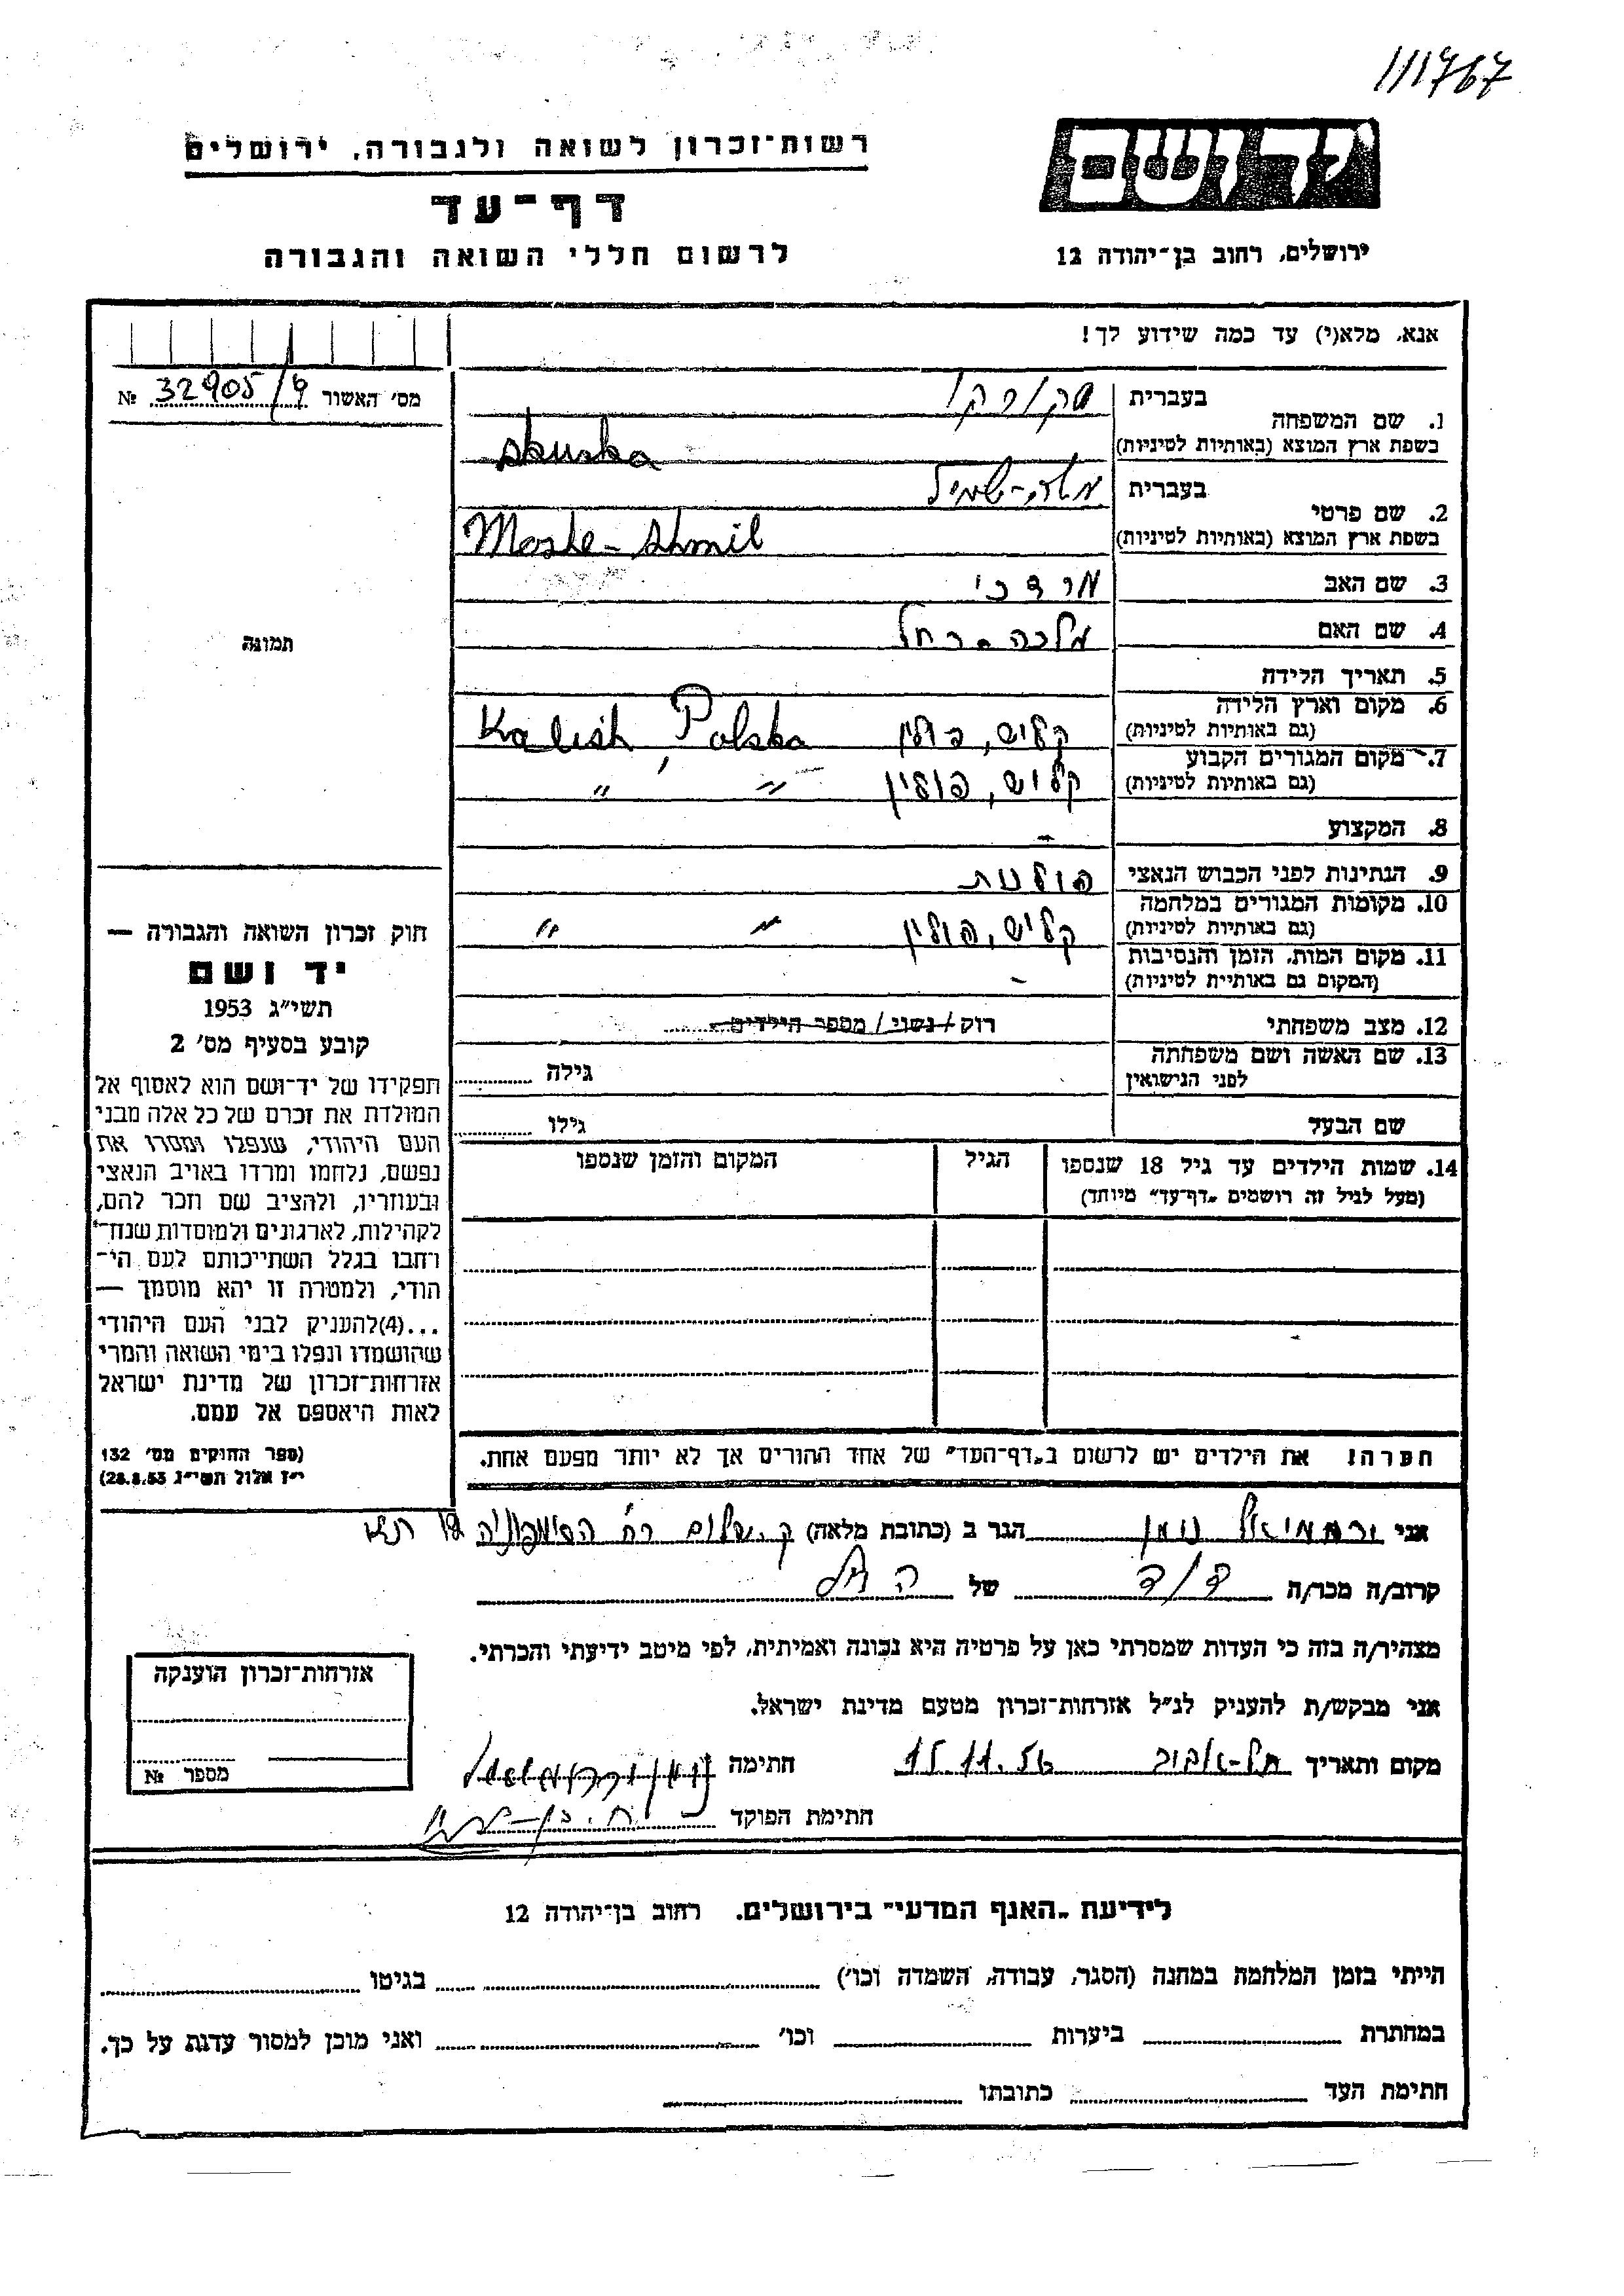 111767
יד ושם
ירושלים, רחוב בן־יהודה 12
רשות־זכרון לשואה ולגבורה, ירושלים
דף־עד
לרשום חללי השואה והגבורה
אנא, מלא(י) עד כמה שידוע לך!
מס׳ האשור 32905/ №
1. שם המשפחה
בעברית
בשפת ארץ המוצא (באותיות לטיניות) Skurka
2. שם פרטי
בעברית משה-שמיל
בשפת ארץ המוצא (באותיות לטיניות) Moshe-Shmil
3. שם האב מרדכי
4. שם האם מלכה-רחל
5. תאריך הלידה
6. מקום וארץ הלידה
(גם באותיות לטיניות) קליש, פולין Kalish, Polska
7. מקום המגורים הקבוע
(גם באותיות לטיניות) קליש, פולין " "
8. המקצוע -
9. הנתינות לפני הכבוש הנאצי פולנית
10. מקומות המגורים במלחמה
(גם באותיות לטיניות) קליש, פולין " "
11. מקום המות, הזמן והנסיבות
(המקום גם באותיות לטיניות) -
12. מצב משפחתי רוק / נשוי / מספר הילדים
13. שם האשה ושם משפחתה
לפני הנישואין גילה
שם הבעל גילו
14. שמות הילדים עד גיל 18 שנספו
(מעל לגיל זה רושמים „דף־עד״ מיוחד)
הגיל
המקום והזמן שנספו
תמונה
חוק זכרון השואה והגבורה —
יד ושם
תשי״ג 1953
קובע בסעיף מס׳ 2
תפקידו של יד־ושם הוא לאסוף אל
המולדת את זכרם של כל אלה מבני
העם היהודי, שנפלו ומסרו את
נפשם, נלחמו ומרדו באויב הנאצי
ובעוזריו, ולהציב שם וזכר להם,
לקהילות, לארגונים ולמוסדות שנח־
רחבו בגלל השתייכותם לעם הי־
הודי, ולמטרה זו יהא מוסמך —
...(4)להעניק לבני העם היהודי
שהושמדו ונפלו בימי השואה והמרי
אזרחות־זכרון של מדינת ישראל
לאות היאספם אל עמם.
(ספר החוקים מס׳ 132
י״ז אלול תשי״ג 28.8.53)
הערה! את הילדים יש לרשום ב„דף־העד״ של אחד ההורים אך לא יותר מפעם אחת.
אני נומן הגר ב (כתובת מלאה) ק. שלום רח'
קרוב/ה מכר/ה דוד של הנ"ל
מצהיר/ה בזה כי העדות שמסרתי כאן על פרטיה היא נכונה ואמיתית, לפי מיטב ידיעתי והכרתי.
אני מבקש/ת להעניק לנ״ל אזרחות־זכרון מטעם מדינת ישראל.
מקום ותאריך תל-אביב 15.11.56 חתימה
חתימת הפוקד
אזרחות־זכרון הוענקה
מספר №
לידיעת „האגף המדעי״ בירושלים. רחוב בן־יהודה 12
הייתי בזמן המלחמה במחנה (הסגר, עבודה, השמדה וכו׳) בגיטו
במחתרת ביערות וכו׳ ואני מוכן למסור עדות על כך.
חתימת העד כתובתו